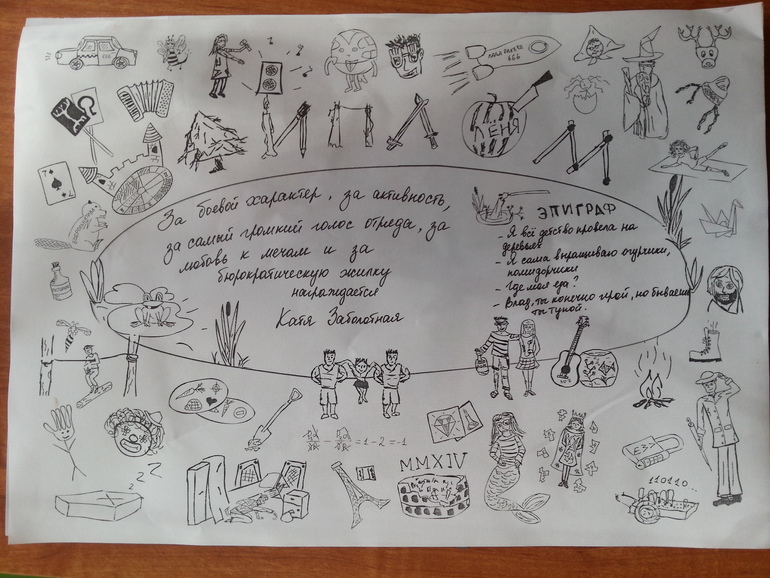 666
НАША РАКЕТА
666
ДИПЛОМ
ЛЁНЯ
За боевой характер, за активность,
за самый громкий голос отряда, за
любовь к мечам и за
бюрократическую жилку
награждается
Катя Заболотная
ЭПИГРАФ
- Я всё детство провела на
деревьях
- Я сама выращиваю огурчики,
помидорчики
- Где моя еда?
- Влад, ты конечно герой, но бываешь
ты тупой.
= 1-2 = -1
MMXIV
E=3
110110..
z z Z